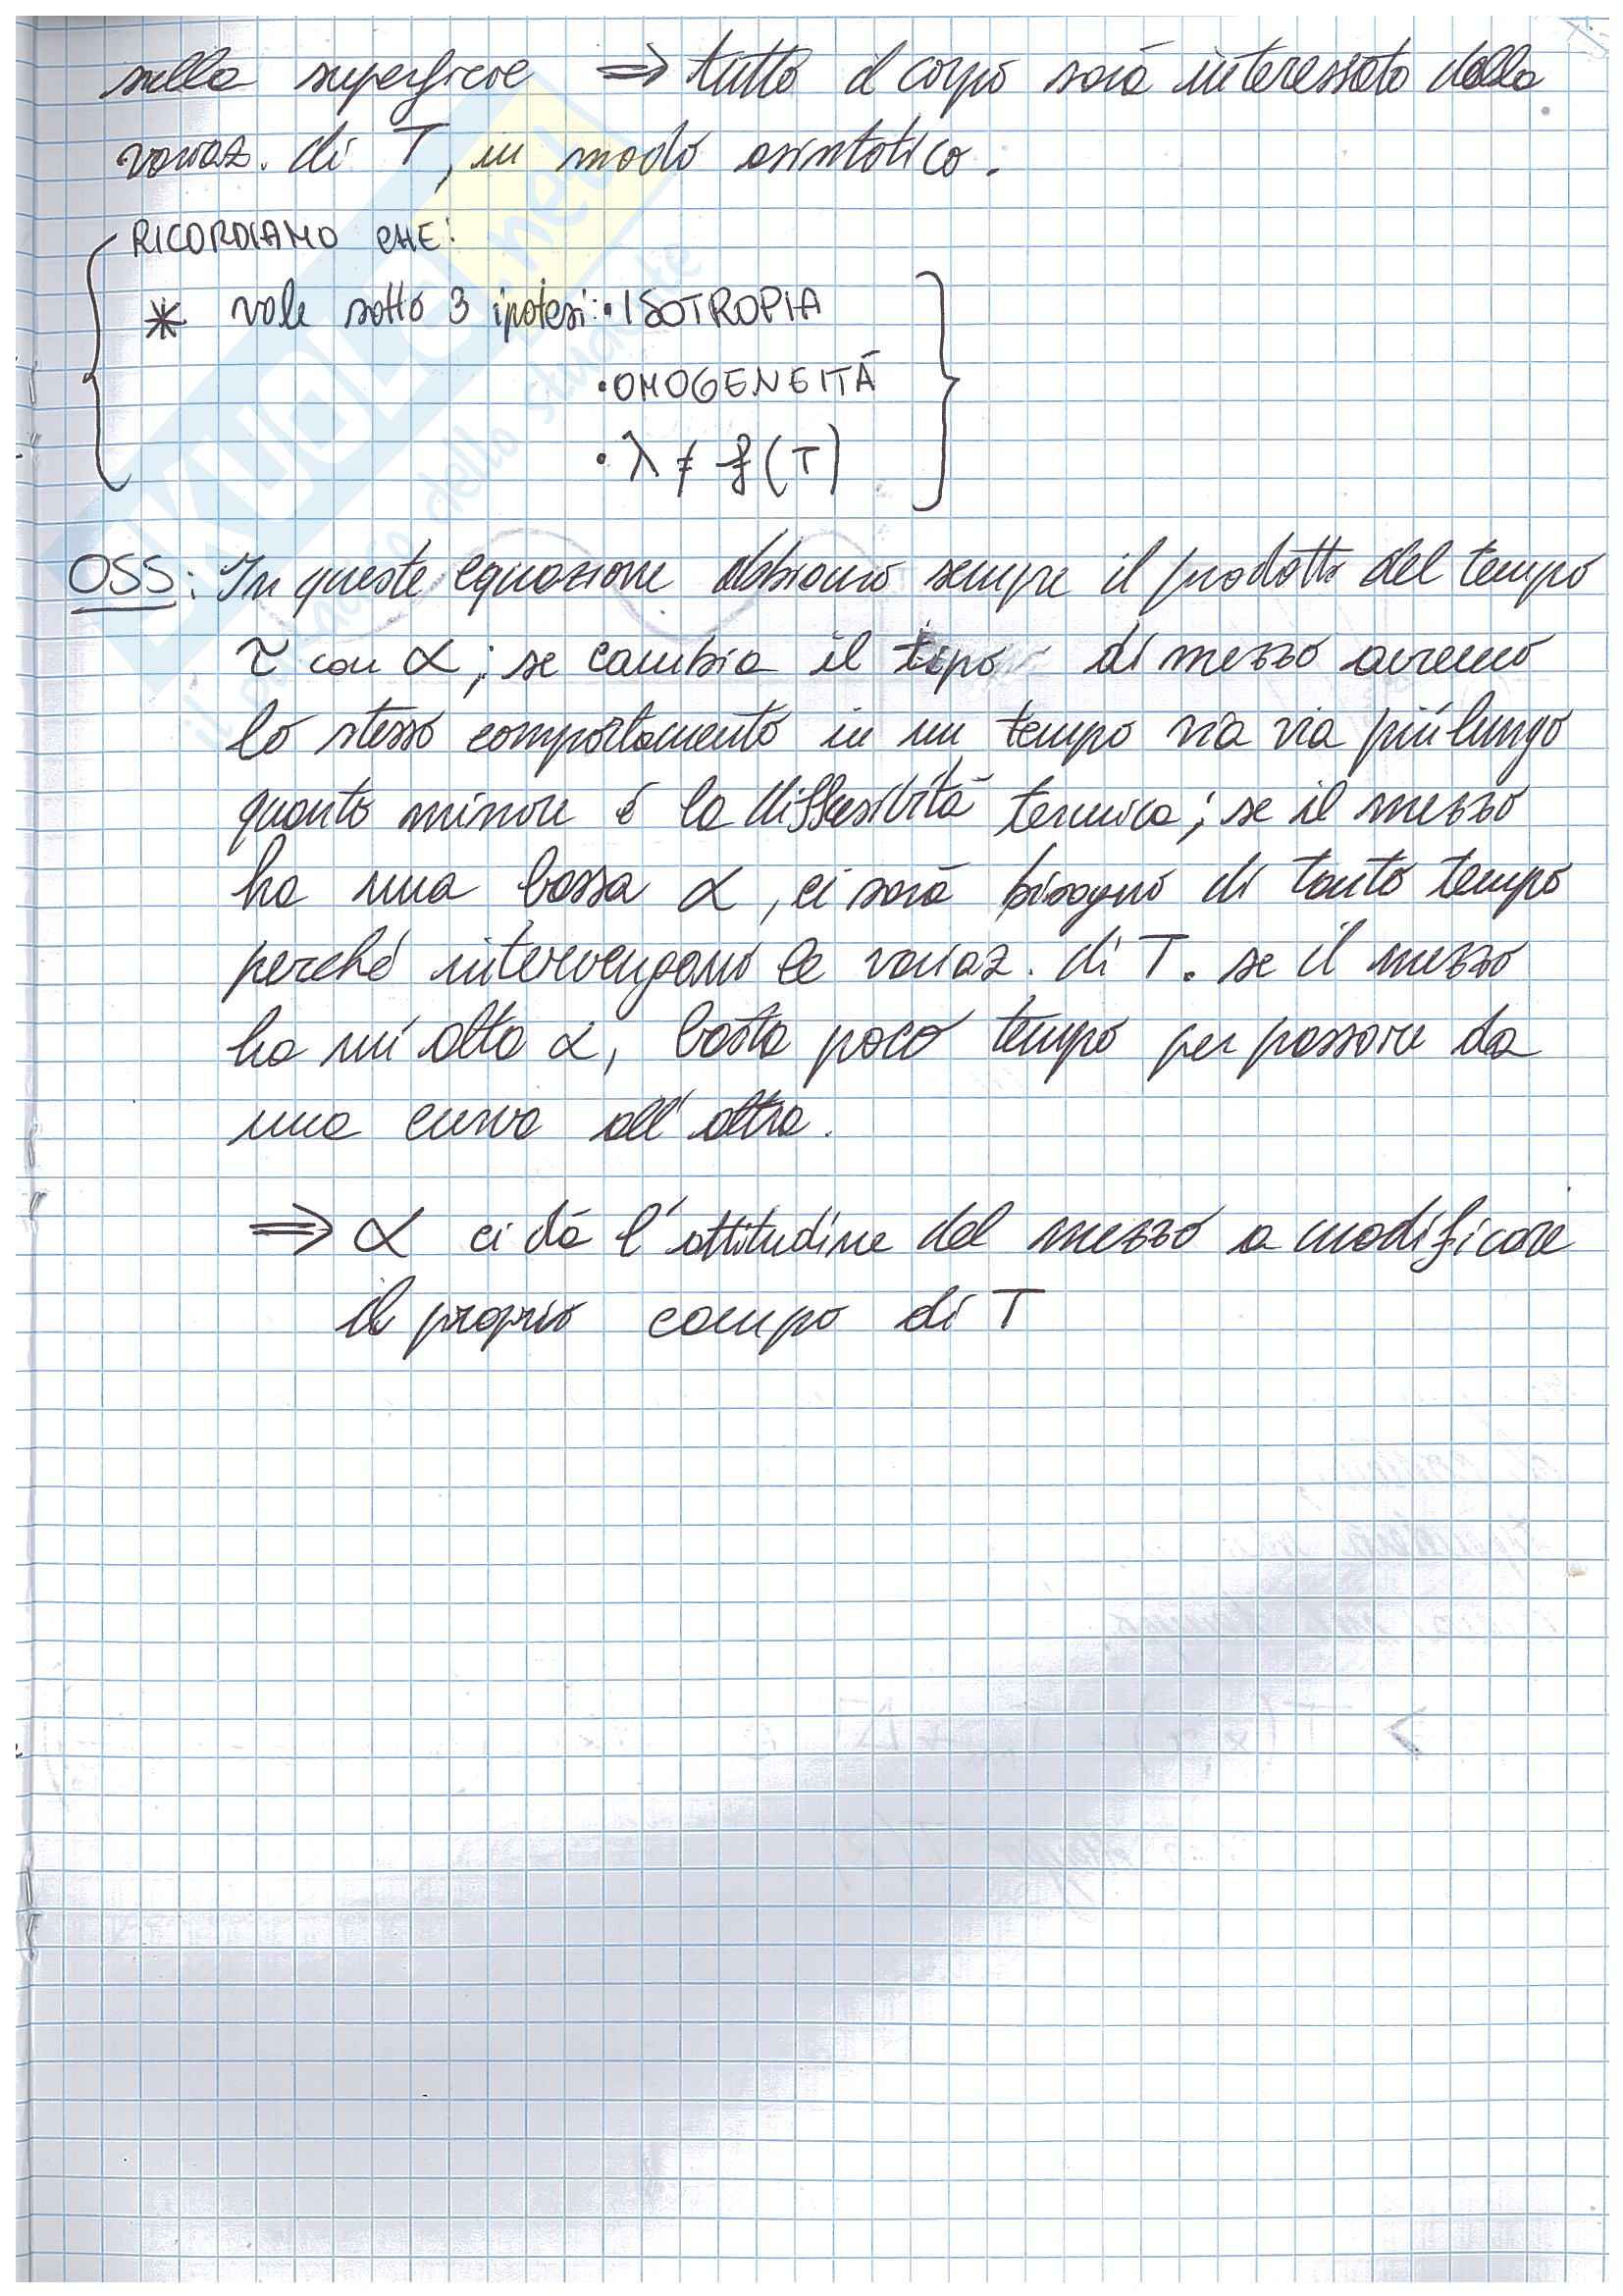 sulla superficie ⇒ tutto il corpo sará interessato dalla
variaz. di T, in modo asintotico.
RICORDIAMO CHE:
* vale sotto 3 ipotesi: • ISOTROPIA
• OMOGENEITÁ
• λ ≠ f(T)
OSS: In queste equazione abbiamo sempre il prodotto del tempo
τ con α; se cambia il tipo di mezzo avremo
lo stesso comportamento in un tempo via via piú lungo
quanto minore é la diffusivitá termica; se il mezzo
ha una bassa α, ci sará bisogno di tanto tempo
perché intervengano le variaz. di T. se il mezzo
ha un'alta α, basta poco tempo per passare da
una curva all'altra.
⇒ α ci dá l'attitudine del mezzo a modificare
il proprio campo di T
SKUOLA.net
il paradiso dello studente